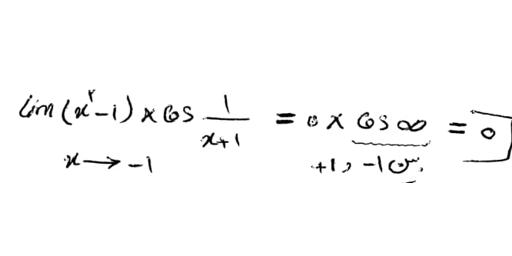 lim (x²-1) × cos 1/(x+1) = 0 × cos ∞ = 0
x → -1
بین -1 و +1